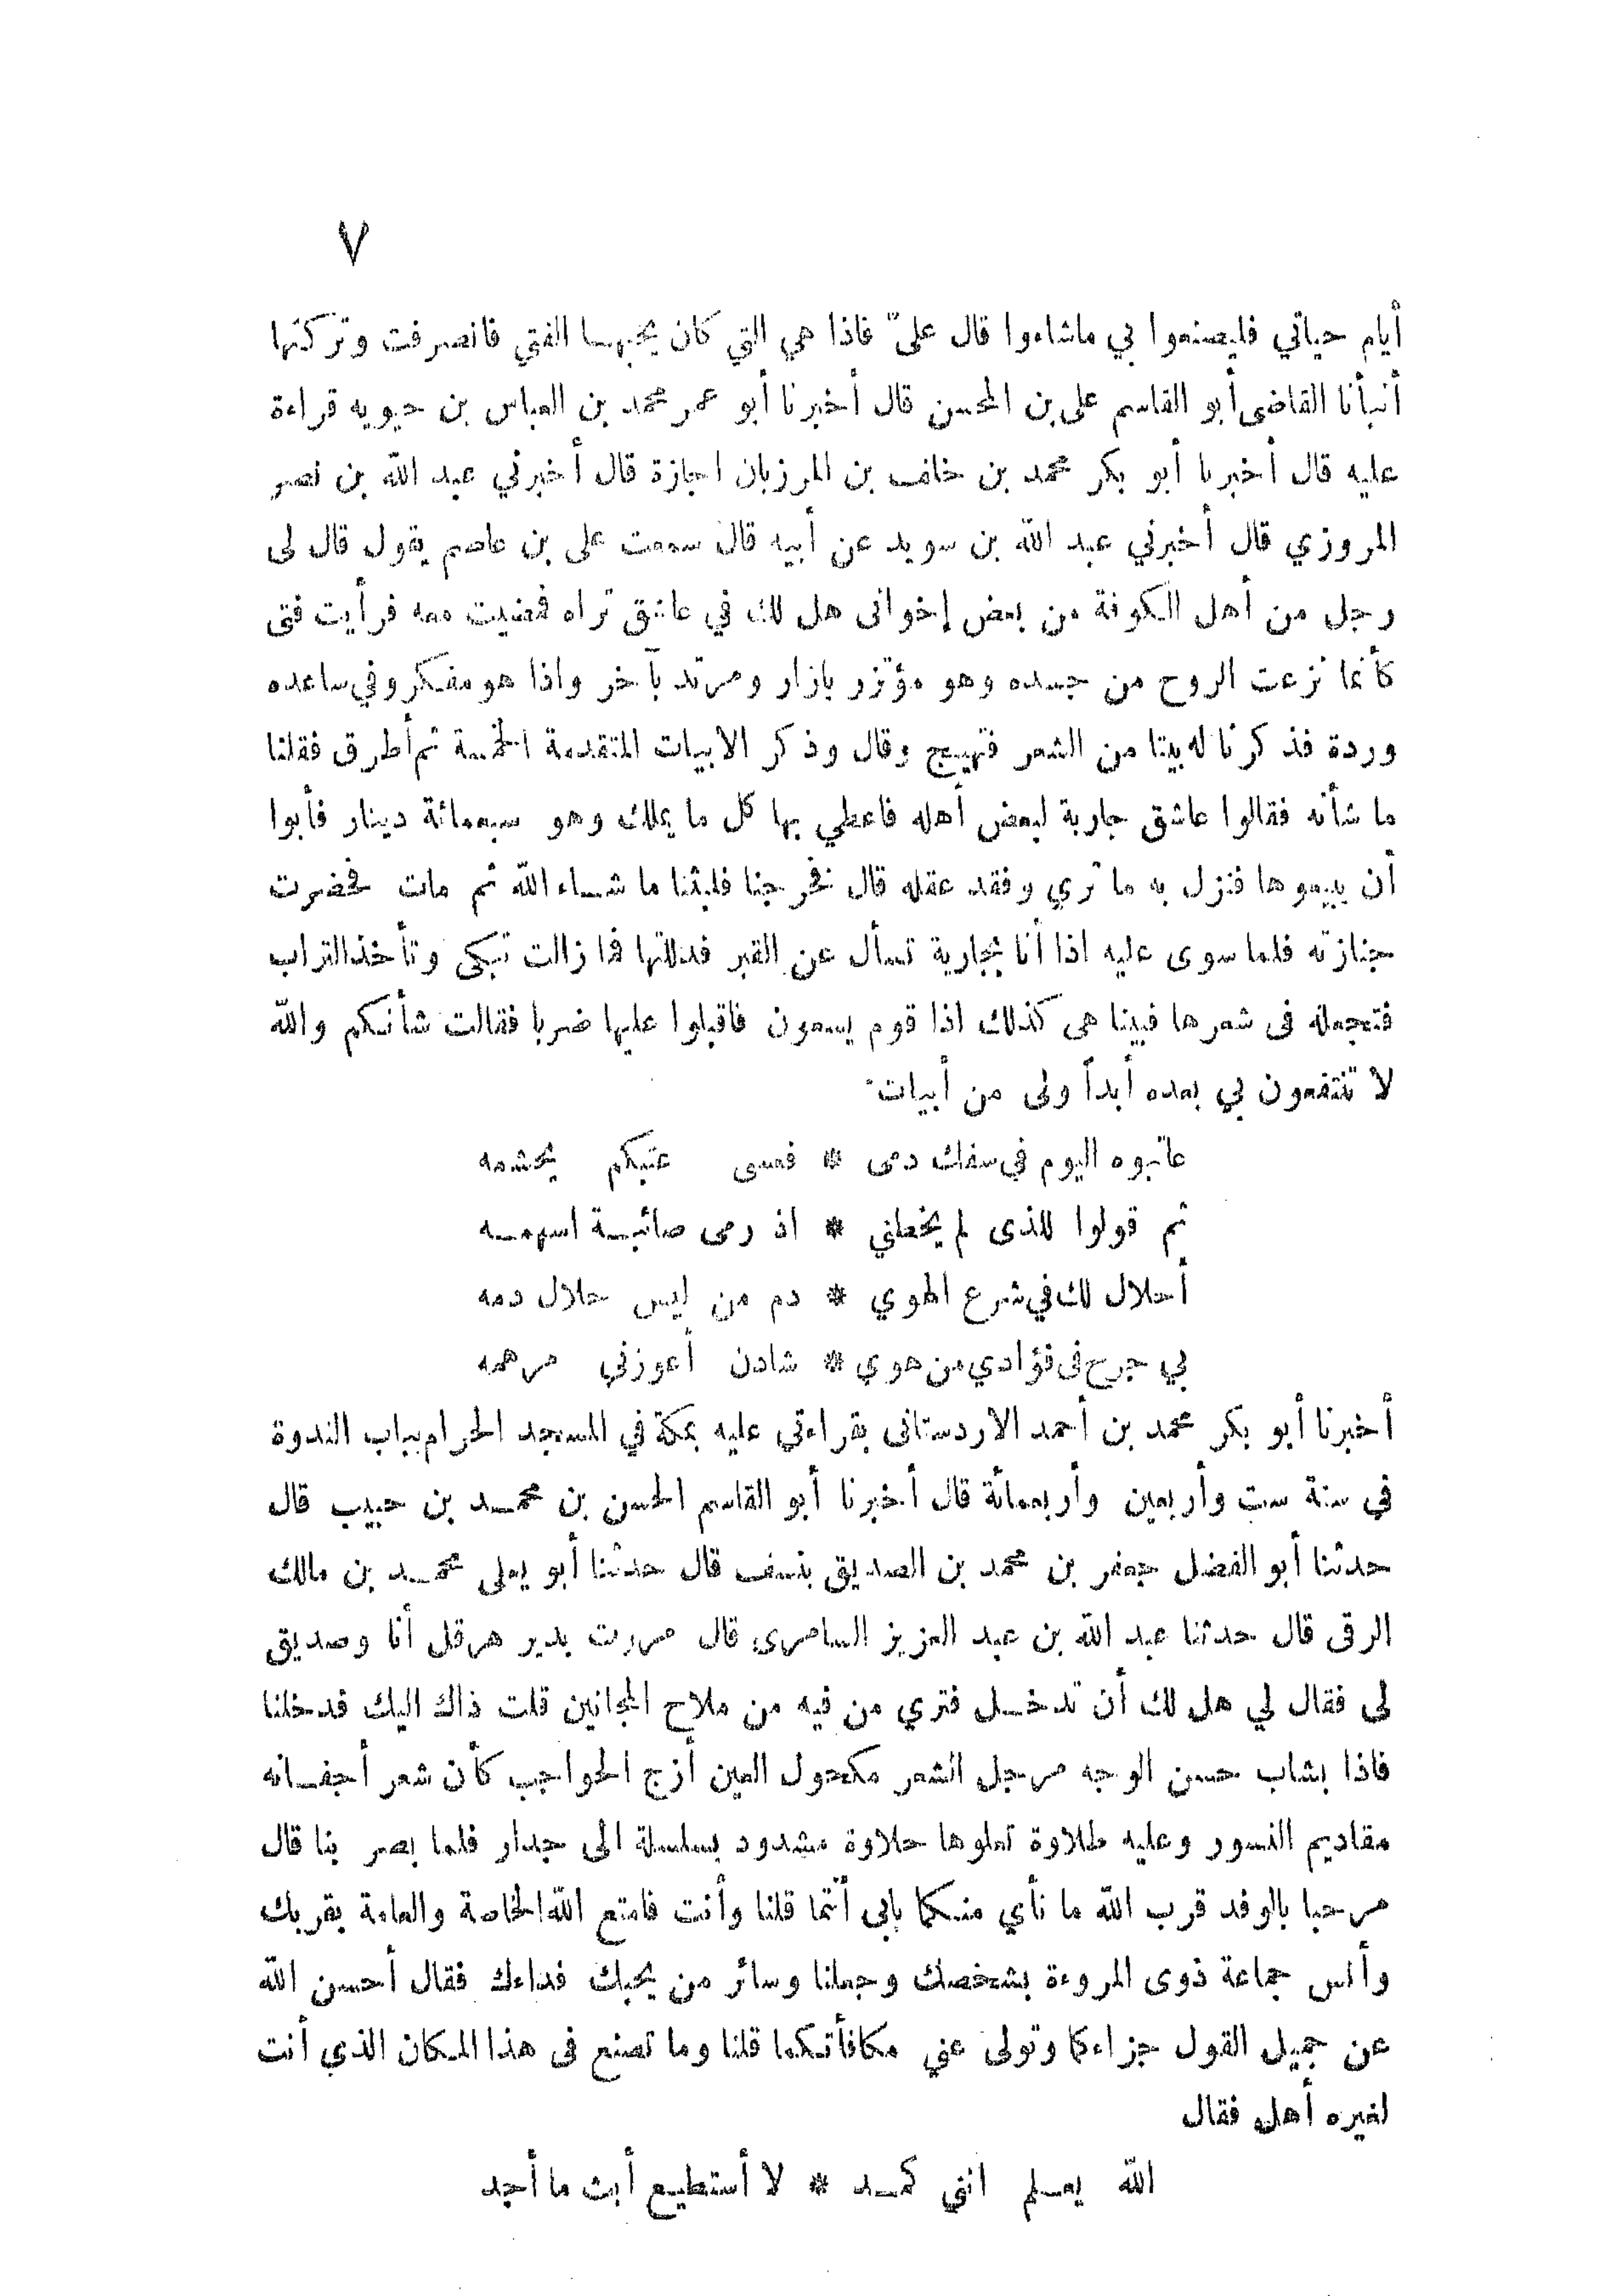 ٧
أيام حياتي فليصنعوا بي ماشاءوا قال علىّ فاذا هي التي كان يحبهـا الفتي فانصرفت وتركتها
أنبأنا القاضي أبو القاسم على بن المحسن قال أخبرنا أبو عمر محمد بن العباس بن حيويه قراءة
عليه قال أخبرنا أبو بكر محمد بن خلف بن المرزبان اجازة قال أخبرني عبد الله بن نصر
المروزي قال أخبرني عبد الله بن سويد عن أبيه قال سمعت على بن عاصم يقول قال لى
رجل من أهل الكوفة من بعض إخوانى هل لك في عاشق تراه فمضيت معه فرأيت فتى
كأنما نزعت الروح من جسده وهو مؤتزر بازار ومرتد بآخر واذا هو مفكر وفي ساعده
وردة فذكرنا له بيتا من الشعر فتهيج وقال وذكر الابيات المتقدمة الخمسة ثم أطرق فقلنا
ما شأنه فقالوا عاشق جارية لبعض أهله فاعطي بها كل ما يملك وهو سبعمائة دينار فأبوا
أن يبيعوها فنزل به ما تري وفقد عقله قال فخرجنا فلبثنا ما شـاء الله ثم مات فحضرت
جنازته فلما سوى عليه اذا أنا بجارية تسأل عن القبر فدللتها فما زالت تبكى وتأخذ التراب
فتجعله فى شعرها فبينا هى كذلك اذا قوم يسعون فاقبلوا عليها ضربا فقالت شأنكم والله
لا تنتفعون بي بعده أبداً ولى من أبيات
عاتبوه اليوم في سفك دمى * فعسى عتبكم يحشمه
ثم قولوا للذى لم يخطني * اذ رمى صائبـة اسهمـه
أحلال لك في شرع الهوي * دم من ليس حلال دمه
بي جرح فى فؤادي من هوي * شادن أعوزني مرهمه
أخبرنا أبو بكر محمد بن أحمد الاردستانى بقراءتي عليه بمكة في المسجد الحرام بباب الندوة
في سنة ست وأربعين وأربعمائة قال أخبرنا أبو القاسم الحسن بن محمـد بن حبيب قال
حدثنا أبو الفضل جعفر بن محمد بن الصديق بنسف قال حدثنا أبو يعلى محمـد بن مالك
الرقى قال حدثنا عبد الله بن عبد العزيز السامرى قال مررت بدير هرقل أنا وصديق
لى فقال لي هل لك أن تدخـل فتري من فيه من ملاح المجانين قلت ذاك اليك فدخلنا
فاذا بشاب حسن الوجه مرجل الشعر مكحول العين أزج الحواجب كأن شعر أجفـانه
مقاديم النسور وعليه طلاوة تعلوها حلاوة مشدود بسلسلة الى جدار فلما بصر بنا قال
مرحبا بالوفد قرب الله ما نأي منكما بابى أنتما قلنا وأنت فامتع الله الخاصة والعامة بقربك
وألس جماعة ذوى المروءة بشخصك وجعلنا وسائر من يحبك فداءك فقال أحسن الله
عن جميل القول جزاءكما وتولى عني مكافأتكما قلنا وما تصنع فى هذا المكان الذي أنت
لغيره أهل فقال
الله يعـلم انني كمـد * لا أستطيـع أبث ما أجد